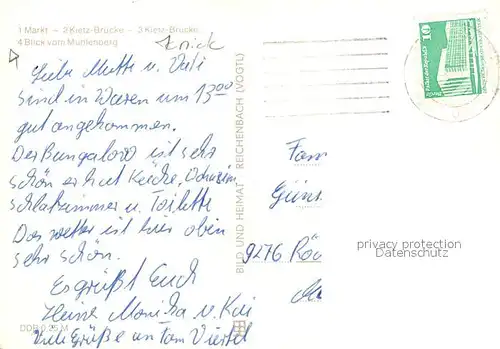 1 Markt – 2 Kietz-Brücke – 3 Kietz-Brücke
4 Blick vom Mühlenberg
Knick
Liebe Mutti u. Vati
sind in Waren um 13⁰⁰
gut angekommen.
Der Bungalow ist sehr
schön er hat Küche,
schlafzimmer u. Toilette
Das wetter ist hier oben
sehr schön.
Es grüßt Euch
Heinz Monika u. Kai
Viele Grüße an Fam Viertel
DDR 0,25 M
BILD UND HEIMAT REICHENBACH (VOGTL)
10
DDR
Fam
Gün
9276 Rö
privacy protection
Datenschutz